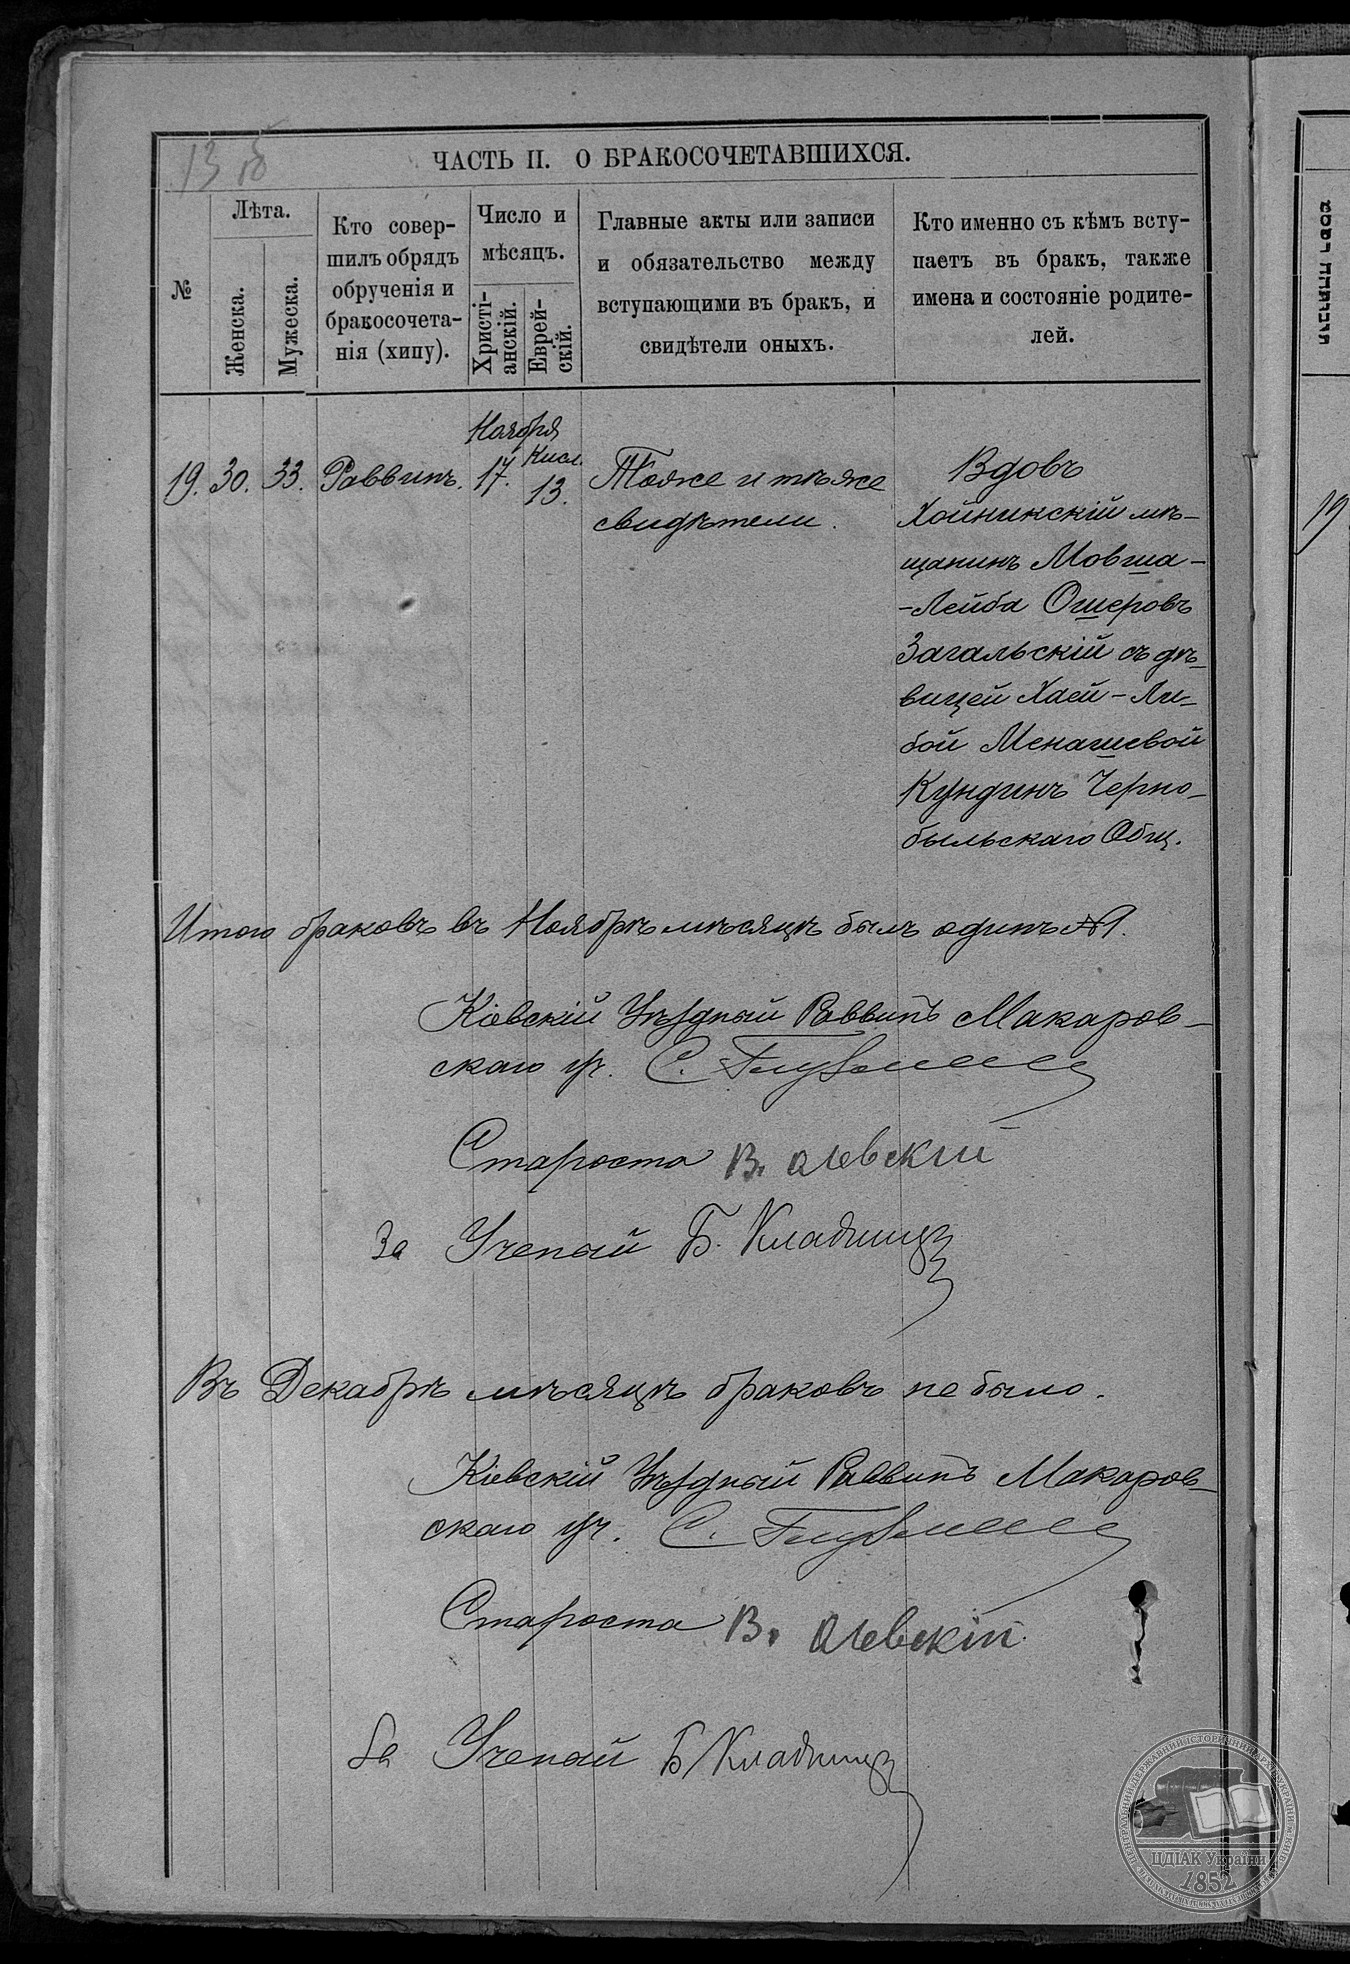 13 об
ЧАСТЬ II. О БРАКОСОЧЕТАВШИХСЯ.
№
Лѣта.
Женска.
Мужеска.
Кто совер-
шилъ обрядъ
обрученія и
бракосочета-
нія (хипу).
Число и
мѣсяцъ.
Христі-
анскій.
Еврей-
скій.
Главные акты или записи
и обязательство между
вступающими въ бракъ, и
свидѣтели оныхъ.
Кто именно съ кѣмъ всту-
паетъ въ бракъ, также
имена и состояніе родите-
лей.
Ноября
19. 30. 33. Раввинъ. 17. Кисл. 13.
Тоже и тѣже
свидѣтели.
Вдовъ
Хойникскій мѣ-
щанинъ Мовша-
-Лейба Ошеровъ
Загальскій съ дѣ-
вицей Хаей-Ли-
бой Менашевой
Кундинъ Черно-
быльскаго Общ.
Итого браковъ въ Ноябрѣ мѣсяцѣ былъ одинъ №1.
Кіевскій Уѣздный Раввинъ Макаров-
скаго уч. С.
Староста В. Олевскій
За Ученый Б. Кладницкій
Въ Декабрѣ мѣсяцѣ браковъ не было.
Кіевскій Уѣздный Раввинъ Макаров-
скаго уч. С.
Староста В. Олевскій
За Ученый Б Кладницкій
19
ЦЕНТРАЛЬНИЙ ДЕРЖАВНИЙ ІСТОРИЧНИЙ АРХІВ УКРАЇНИ
ЦДІАК України
1852